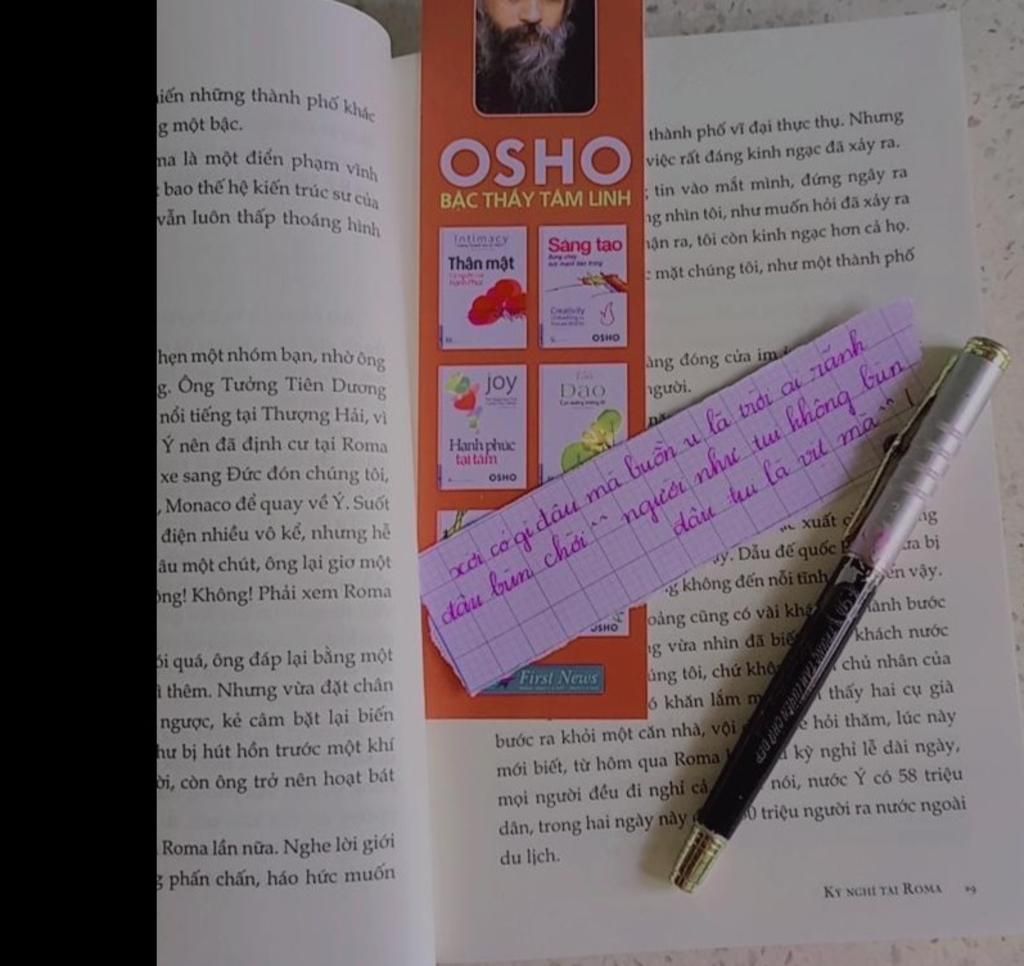 iến những thành phố khác
g một bậc.
na là một điển phạm vĩnh
bao thế hệ kiến trúc sư của
vẫn luôn thấp thoáng hình
hẹn một nhóm bạn, nhờ ông
g. Ông Tưởng Tiên Dương
nổi tiếng tại Thượng Hải, vì
Ý nên đã định cư tại Roma
xe sang Đức đón chúng tôi,
, Monaco để quay về Ý. Suốt
điện nhiều vô kể, nhưng hễ
âu một chút, ông lại giơ một
ông! Không! Phải xem Roma
ỏi quá, ông đáp lại bằng một
ì thêm. Nhưng vừa đặt chân
ngược, kẻ câm bặt lại biến
hư bị hút hồn trước một khí
ời, còn ông trở nên hoạt bát
Roma lần nữa. Nghe lời giới
g phấn chấn, háo hức muốn
OSHO
BẬC THẦY TÂM LINH
Intimacy
Thân mật
Sáng tạo
Creativity
OSHO
joy
Hạnh phúc
tại tâm
OSHO
Đạo
OSHO
First News
xời có gì đâu mà buồn u là trời ai rãnh
đâu bùn chời ^^ người như tui không bùn
đâu tui là vit mà ^^ !
thành phố vĩ đại thực thụ. Nhưng
việc rất đáng kinh ngạc đã xảy ra.
tin vào mắt mình, đứng ngây ra
ng nhìn tôi, như muốn hỏi đã xảy ra
ận ra, tôi còn kinh ngạc hơn cả họ.
mặt chúng tôi, như một thành phố
àng đóng cửa im
người.
xuất
ng
ay. Dẫu đế quốc
ưa bị
g không đến nỗi tĩnh
ên vậy.
oảng cũng có vài khá
ành bước
g vừa nhìn đã biế
khách nước
úng tôi, chứ khô
chủ nhân của
ó khăn lắm m
thấy hai cụ già
bước ra khỏi một căn nhà, vội
hỏi thăm, lúc này
mới biết, từ hôm qua Roma
kỳ nghỉ lễ dài ngày,
mọi người đều đi nghỉ cả
nói, nước Ý có 58 triệu
dân, trong hai ngày này
0 triệu người ra nước ngoài
du lịch.
KỲ NGHỈ TẠI ROMA